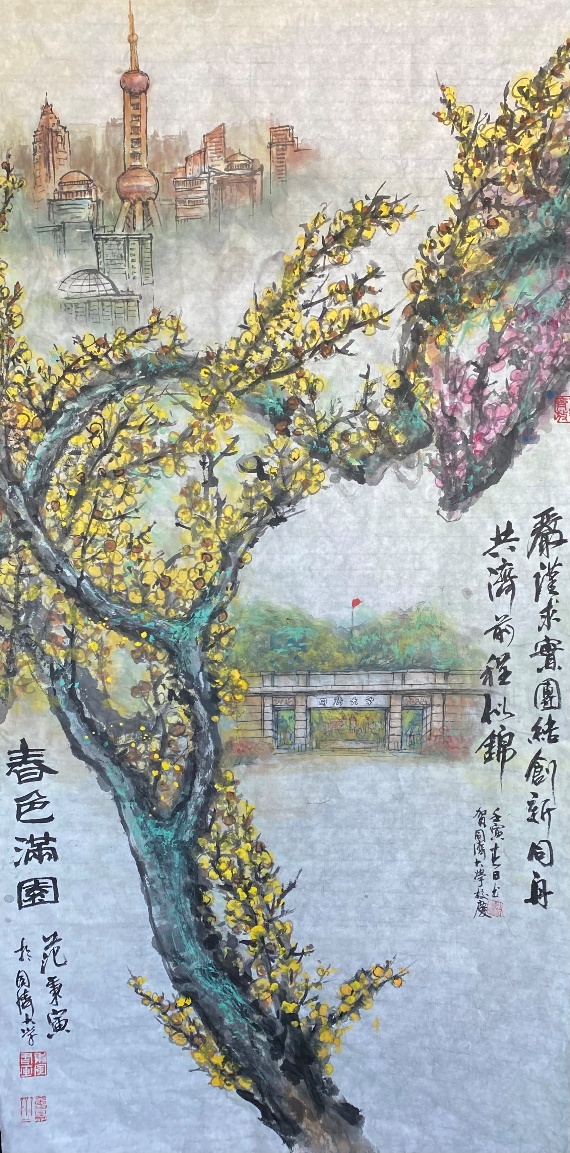 嚴謹求實團結創新同舟
共濟前程似錦
壬寅春日書
賀同濟大學校慶
同濟大學
春色滿園
范秉寅
於同濟大学